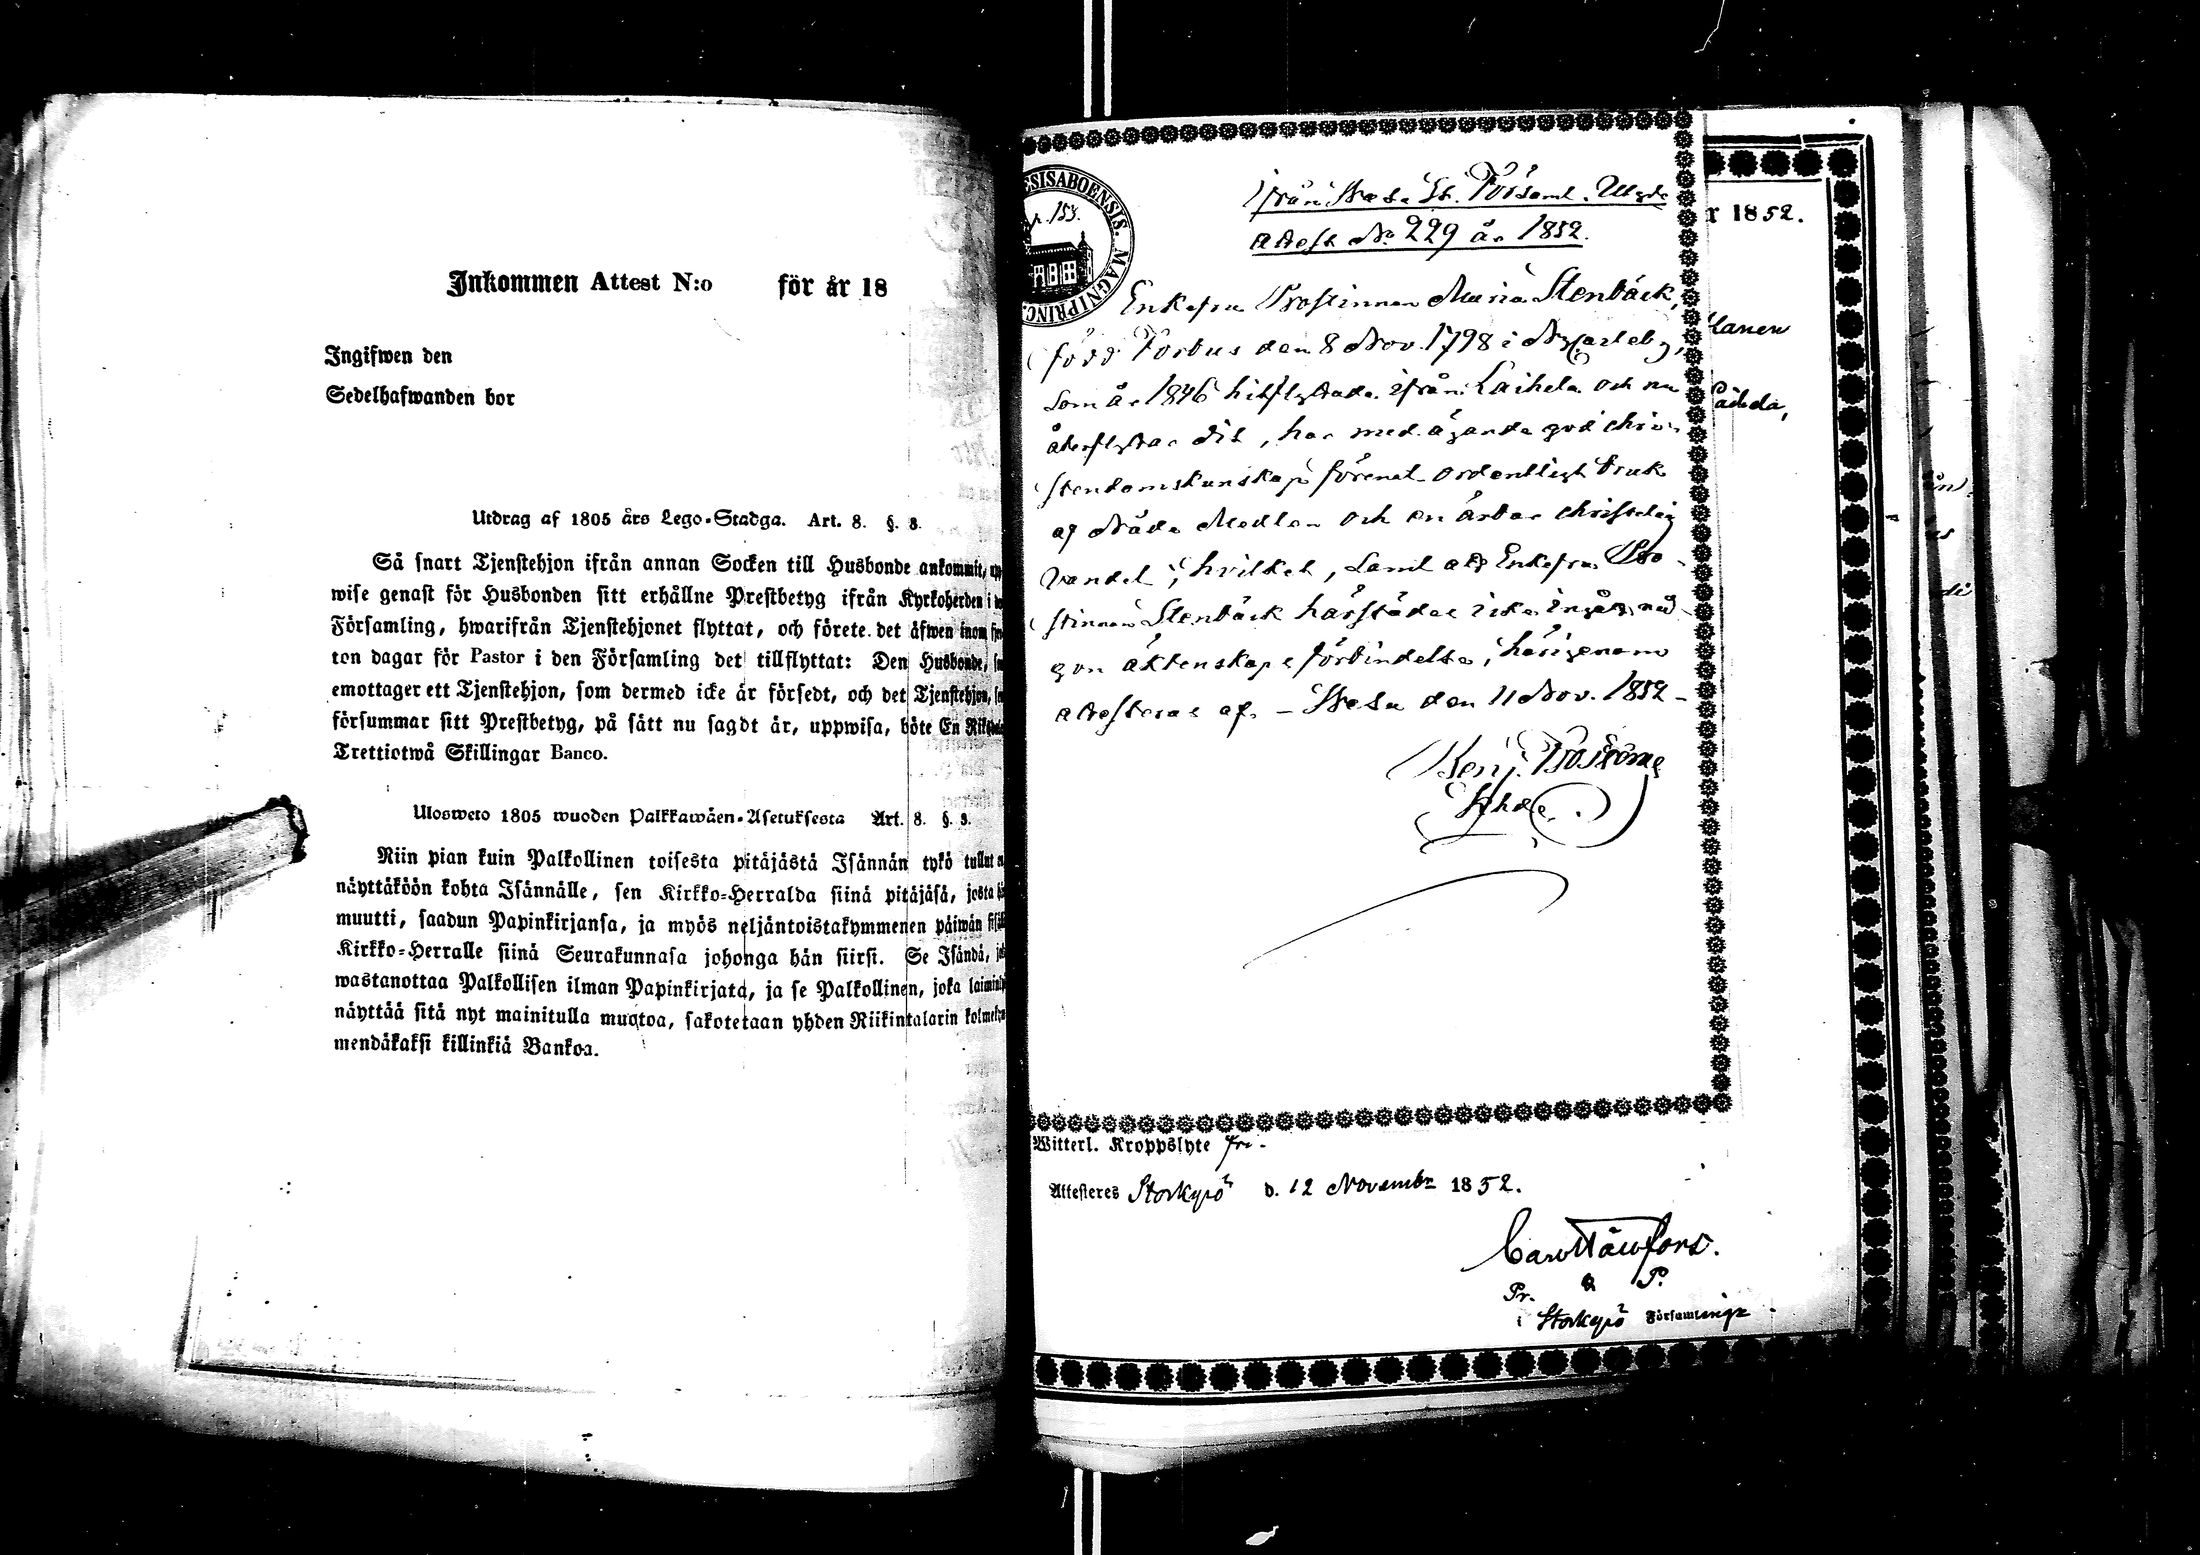 Inkommen Attest N:o för år 18
Ingifwen den
Sedelhafwanden bor
Utdrag af 1805 års Lego-Stadga. Art. 8. §. 3.
Så snart Tjenstehjon ifrån annan Socken till Husbonde ankommit,
wise genast för Husbonden sitt erhållne Prestbetyg ifrån Kyrkoherden i
Församling, hwarifrån Tjenstehjonet flyttat, och förete det äfwen inom
ton dagar för Pastor i den Församling det tillflyttat: Den Husbonde,
emottager ett Tjenstehjon, som dermed icke är försedt, och det Tjenstehjon,
försummar sitt Prestbetyg, på sätt nu sagdt är, uppwisa, böte En
Trettiotwå Skillingar Banco.
Ulosweto 1805 wuoden Palkkawäen-Asetuksesta Art. 8. §. 3.
Niin pian kuin Palkollinen toisesta pitäjästä Isännän tykö tullut
näyttäköön kohta Isännälle, sen Kirkko-Herralda siinä pitäjäsä, josta
muutti, saadun Papinkirjansa, ja myös neljäntoistakymmenen päiwän
Kirkko-Herralle siinä Seurakunnasa johonga hän siirsi. Se Isändä,
wastanottaa Palkollisen ilman Papinkirjata, ja se Palkollinen, joka
näyttää sitä nyt mainitulla muotoa, sakotetaan yhden Riikintalarin
mendäkaksi killinkiä Bankoa.
ESISABOENSIS. MAGNIPRINC.
p. 153.
ifrån Wasa St. Församl. Utgde
Attest No 229 år 1852.
r 1852.
Enkefru Prostinnan Maria Stenbäck,
född Forbus den 8 Nov. 1798 i Nycarleby,
som år 1846 hitflyttade ifrån Laihela och nu
återflyttar dit, har med ägande god chri-
stendomskunskap förenat ordentligt bruk
af Nåde Medlen och en ärbar christelig
vandel; hvilket, samt att Enkefru Pro-
stinnan Stenbäck härstädes icke ingått nå-
gon äktenskaps förbindelse, härigenom
attesteras af. – Wasa den 11 Nov. 1852 –
Benj. Frosterus
Witterl. Kroppslyte fri.
Attesteres Storkyrö d. 12 November 1852.
Pr. & P.
i Storkyrö Församlings